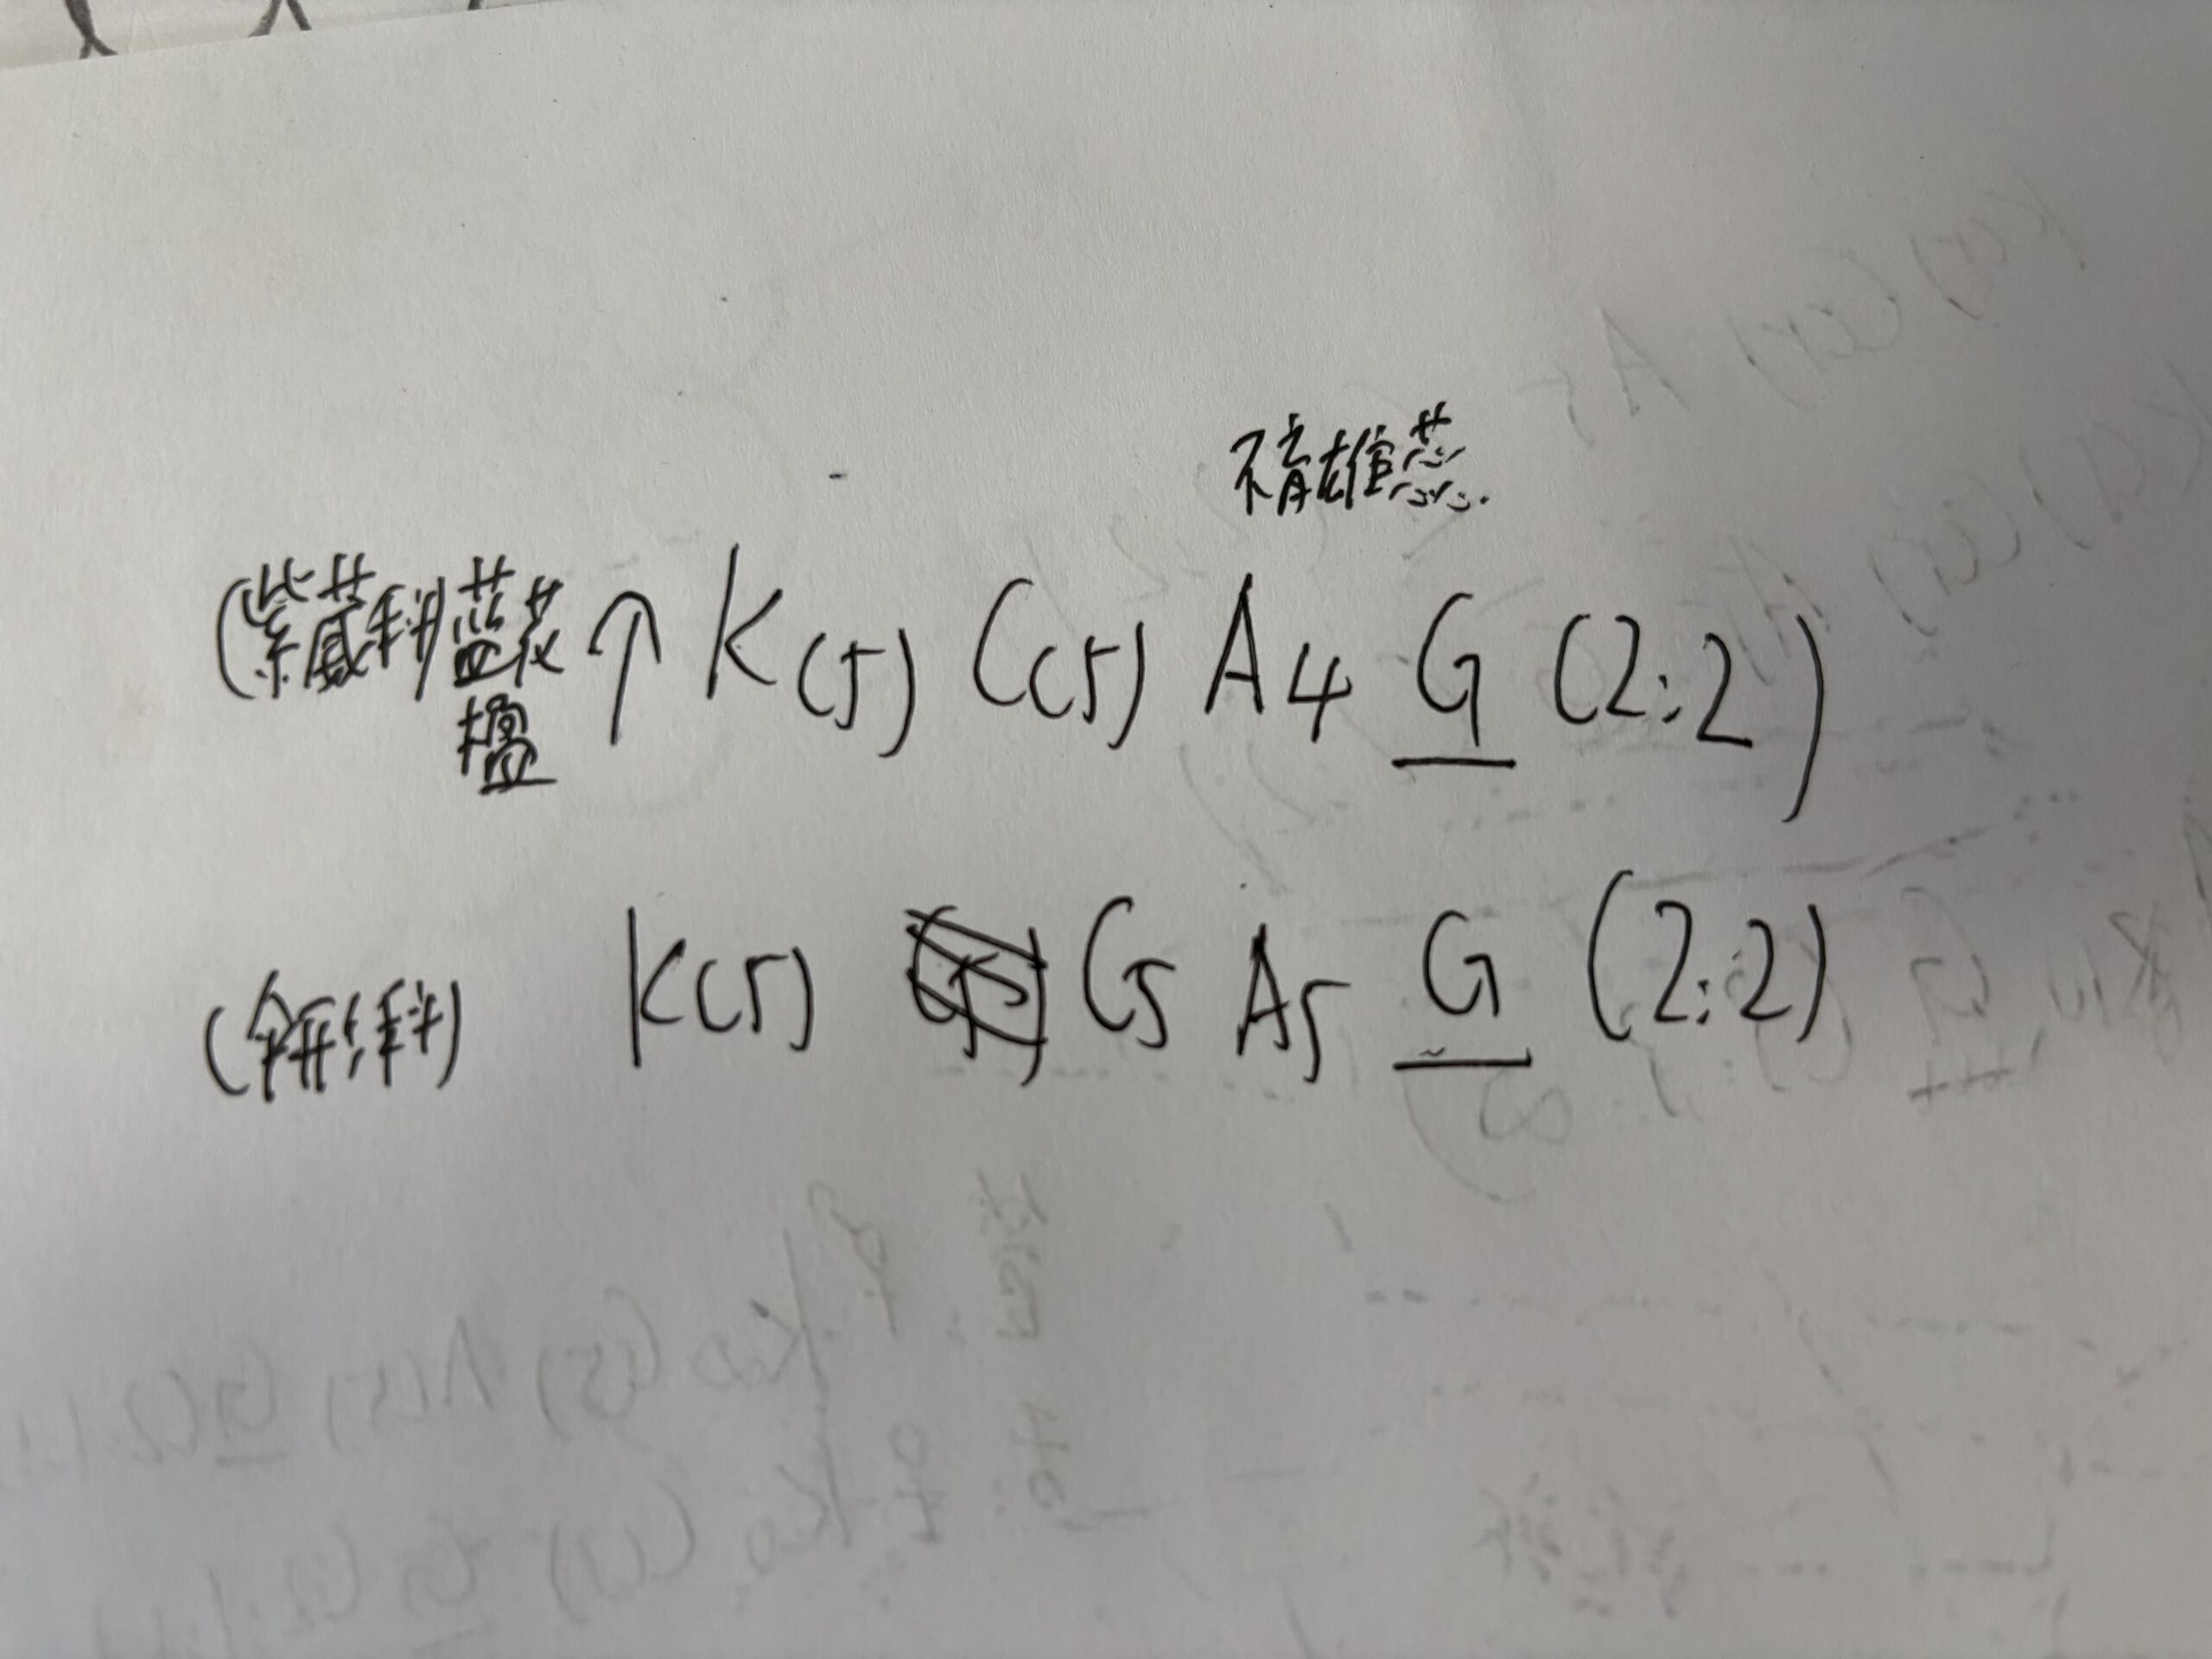 不育雄蕊
(紫葳科蓝花楹 ↑ K(5) C(5) A4 G (2:2)
K(5) C5 A5 G (2:2)